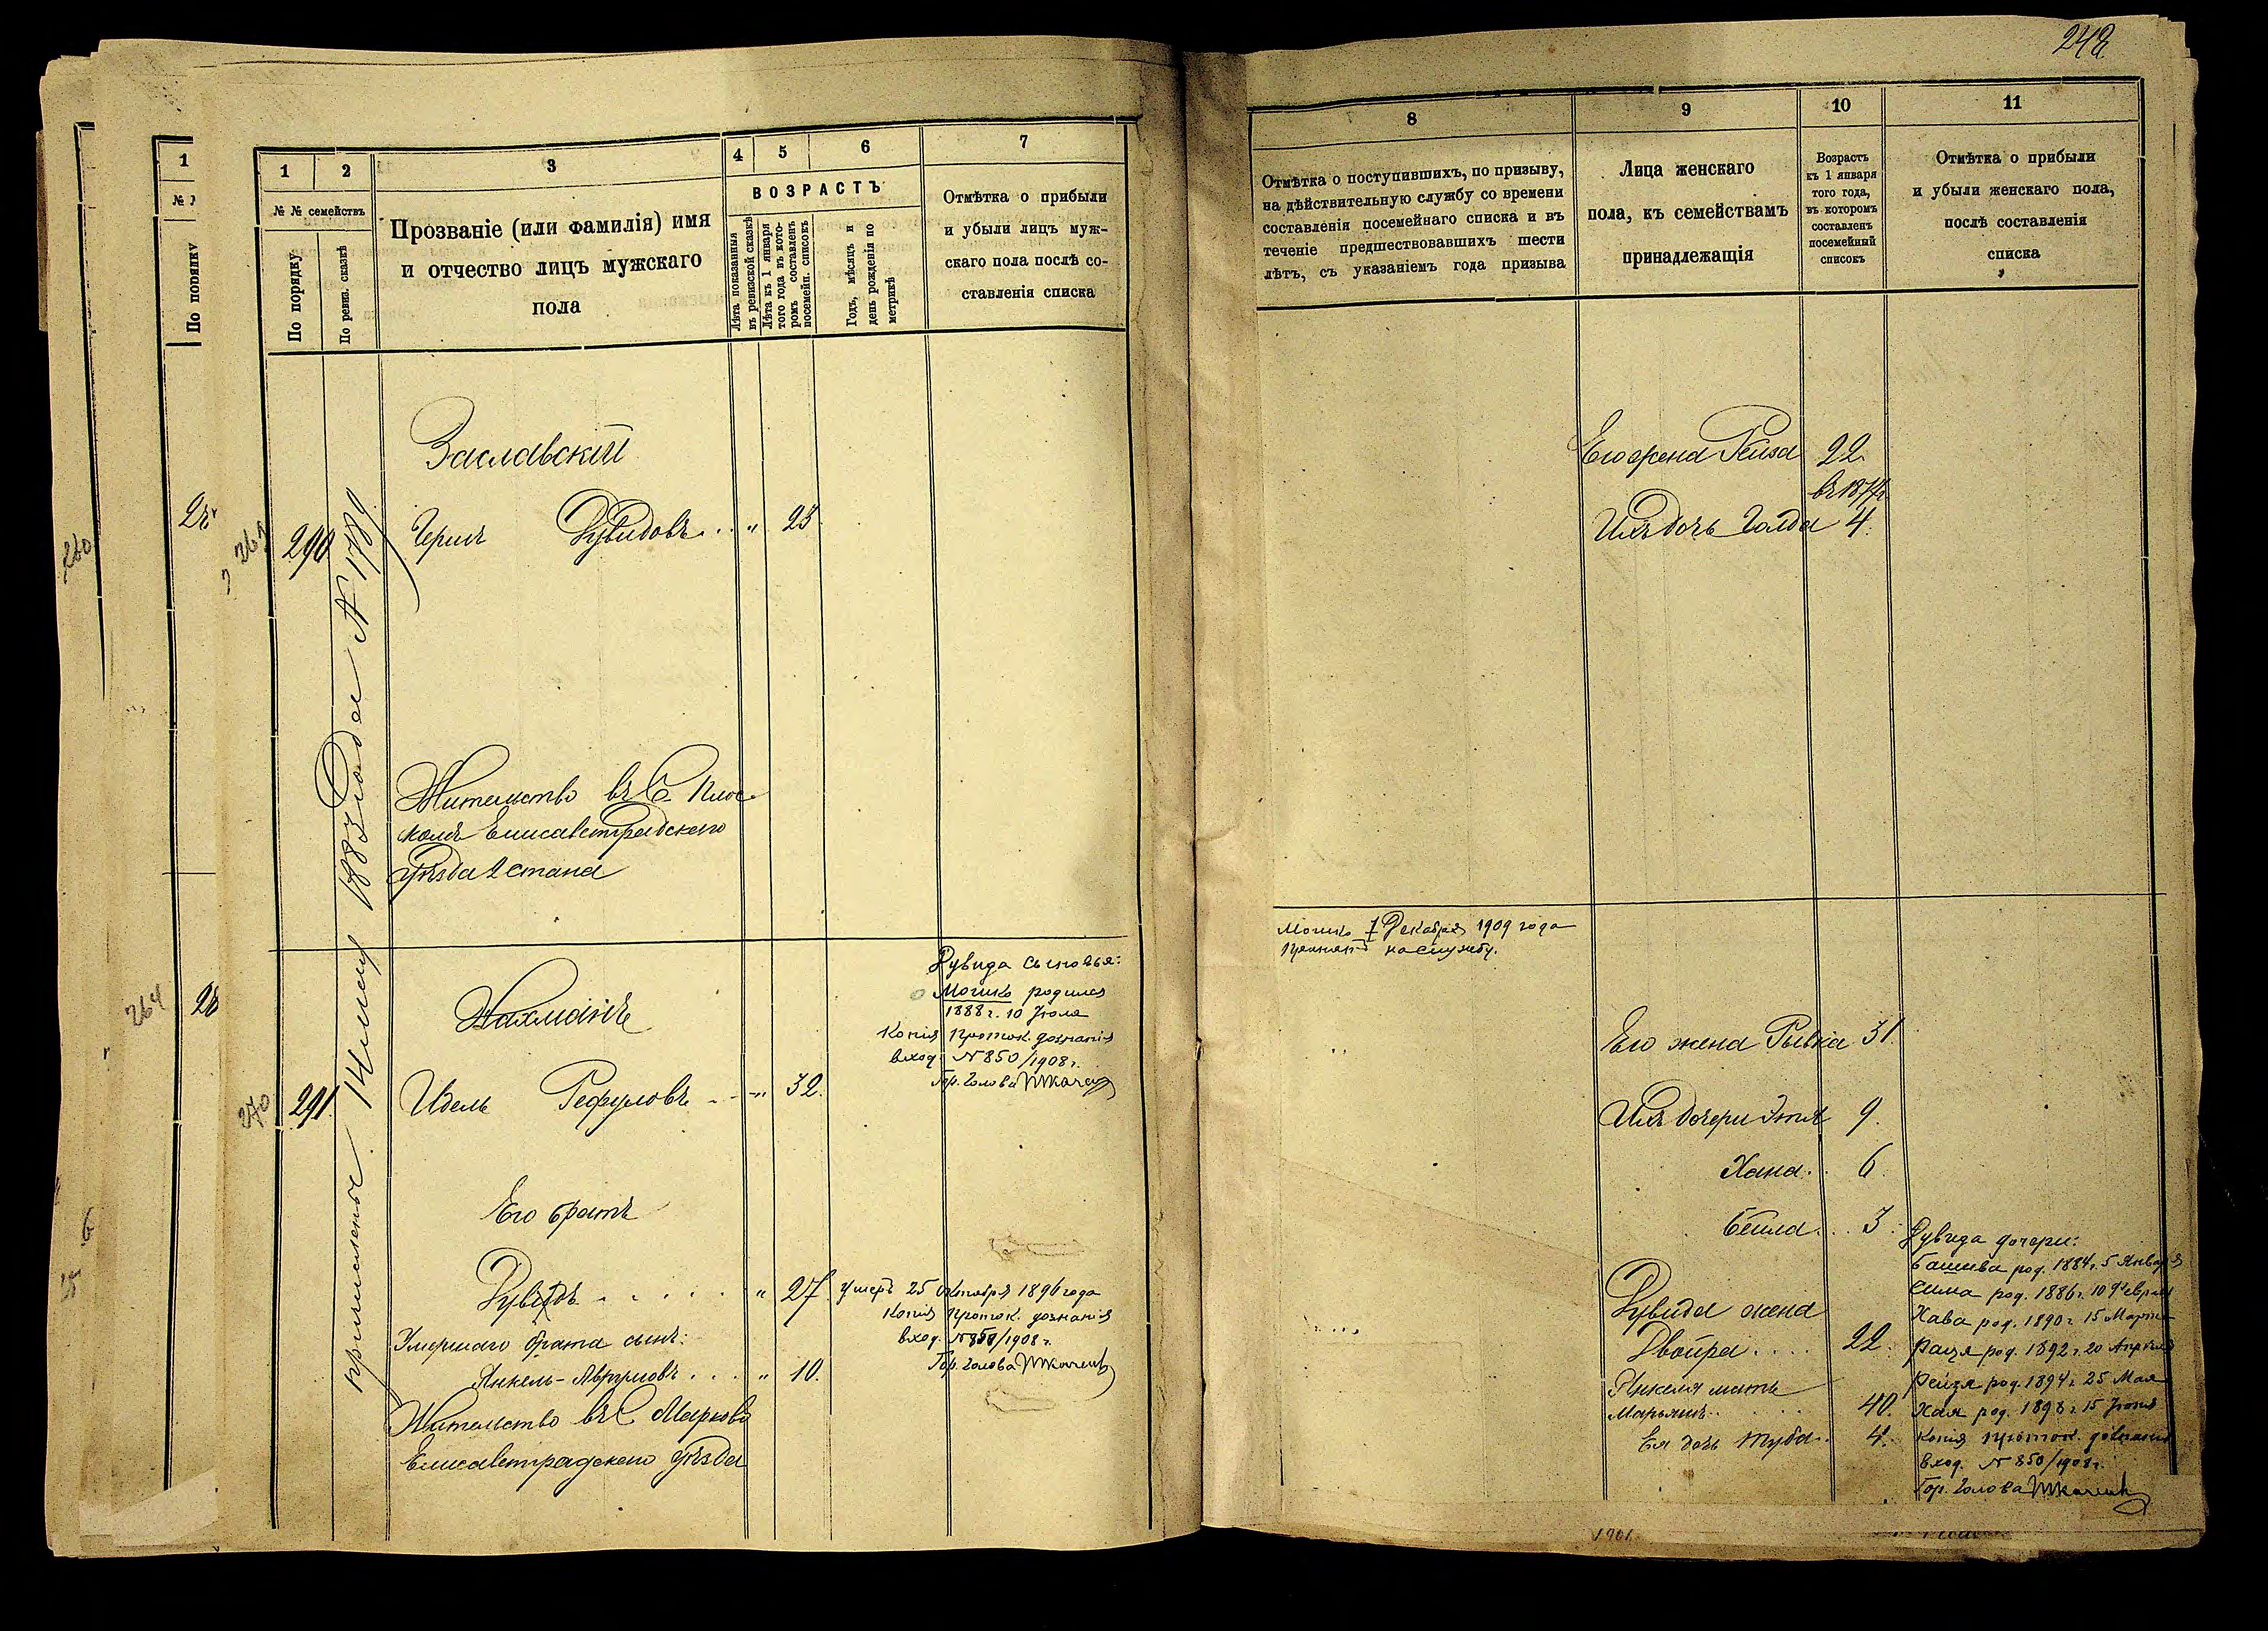 242
1
2
3
4
5
6
7
№ № семействъ
По порядку
По ревиз. сказкѣ
Прозваніе (или фамилія) имя
и отчество лицъ мужскаго
пола
ВОЗРАСТЪ
Лѣта показанныя
въ ревизской сказкѣ
Лѣта къ 1 января
того года въ кото-
ромъ составленъ
посемейн. списокъ
Годъ, мѣсяцъ и
день рожденія по
метрикѣ
Отмѣтка о прибыли
и убыли лицъ муж-
скаго пола послѣ со-
ставленія списка
1
По порядку
260
264
Заславскій
269
290
Гершъ Дувидовъ " 23
Жительство въ С. Плос-
комъ Елисаветградскаго
уѣзда 2 стана
причисленые 1883 Года № 1789
Нахманъ
270
291.
Идель Рефуловъ " 32.
Дувида сыновья:
Мошко родился
1888 г. 10 Іюля
Копія проток. дознанія
вход. № 850/1908 г.
Гор. Голова
Его братъ
Дувидъ " 27
Умеръ 25 Октября 1896 года
Копія проток. дознанія
вход. № 850/1908 г.
Гор. Голова
Умершаго брата сынъ:
Янкель- " 10.
Жительство въ С
Елисаветградскаго уѣзда
8
9
10
11
Отмѣтка о поступившихъ, по призыву,
на дѣйствительную службу со времени
составленія посемейнаго списка и въ
теченіе предшествовавшихъ шести
лѣтъ, съ указаніемъ года призыва
Лица женскаго
пола, къ семействамъ
принадлежащія
Возрастъ
къ 1 января
того года,
въ которомъ
составленъ
посемейный
списокъ
Отмѣтка о прибыли
и убыли женскаго пола,
послѣ составленія
списка
Его жена Рейза 22
Ихъ дочь Голда 4.
Мошко 1 Декабря 1909 года
принятъ на службу.
Его жена Рывка 31.
Ихъ дочери 9.
Хана 6
Бейла 3
Дувида жена
Двойра 22.
Янкеля мать
40.
Ея дочь Туба 4.
Дувида дочери:
Башива род. 1884 г. 5 Января
Сима род. 1886 г. 10 Февраля
Хава род. 1890 г. 15 Марта
род. 1892 г. 20 Апрѣля
Рейзя род. 1894 г. 25 Мая
Хая род. 1898 г. 15
Копія проток. дознанія
вход. № 850/1908 г.
Гор. Голова